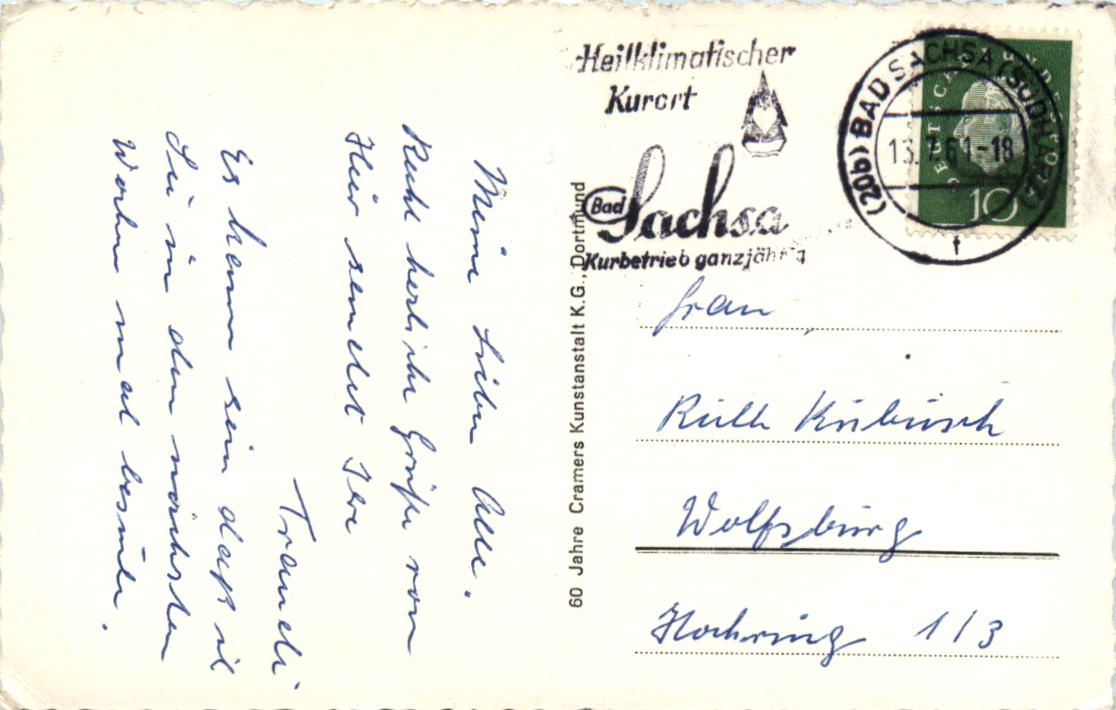 Meine Lieben Alle.
Recht herzliche Grüße von
Hier sendet Ihre
Traudi
Es kann sein daß ich
Sie in den nächsten
Wochen mal besuche.
60 Jahre Cramers Kunstanstalt K.G., Dortmund
Heilklimatischer
Kurort
Bad Sachsa
Kurbetrieb ganzjährig
(20b) BAD SACHSA (SÜDHARZ)
13.7.61-18
f
DEUTSCHE BUNDESPOST
10
Frau
Ruth Kubusch
Wolfsburg
Hochring 113